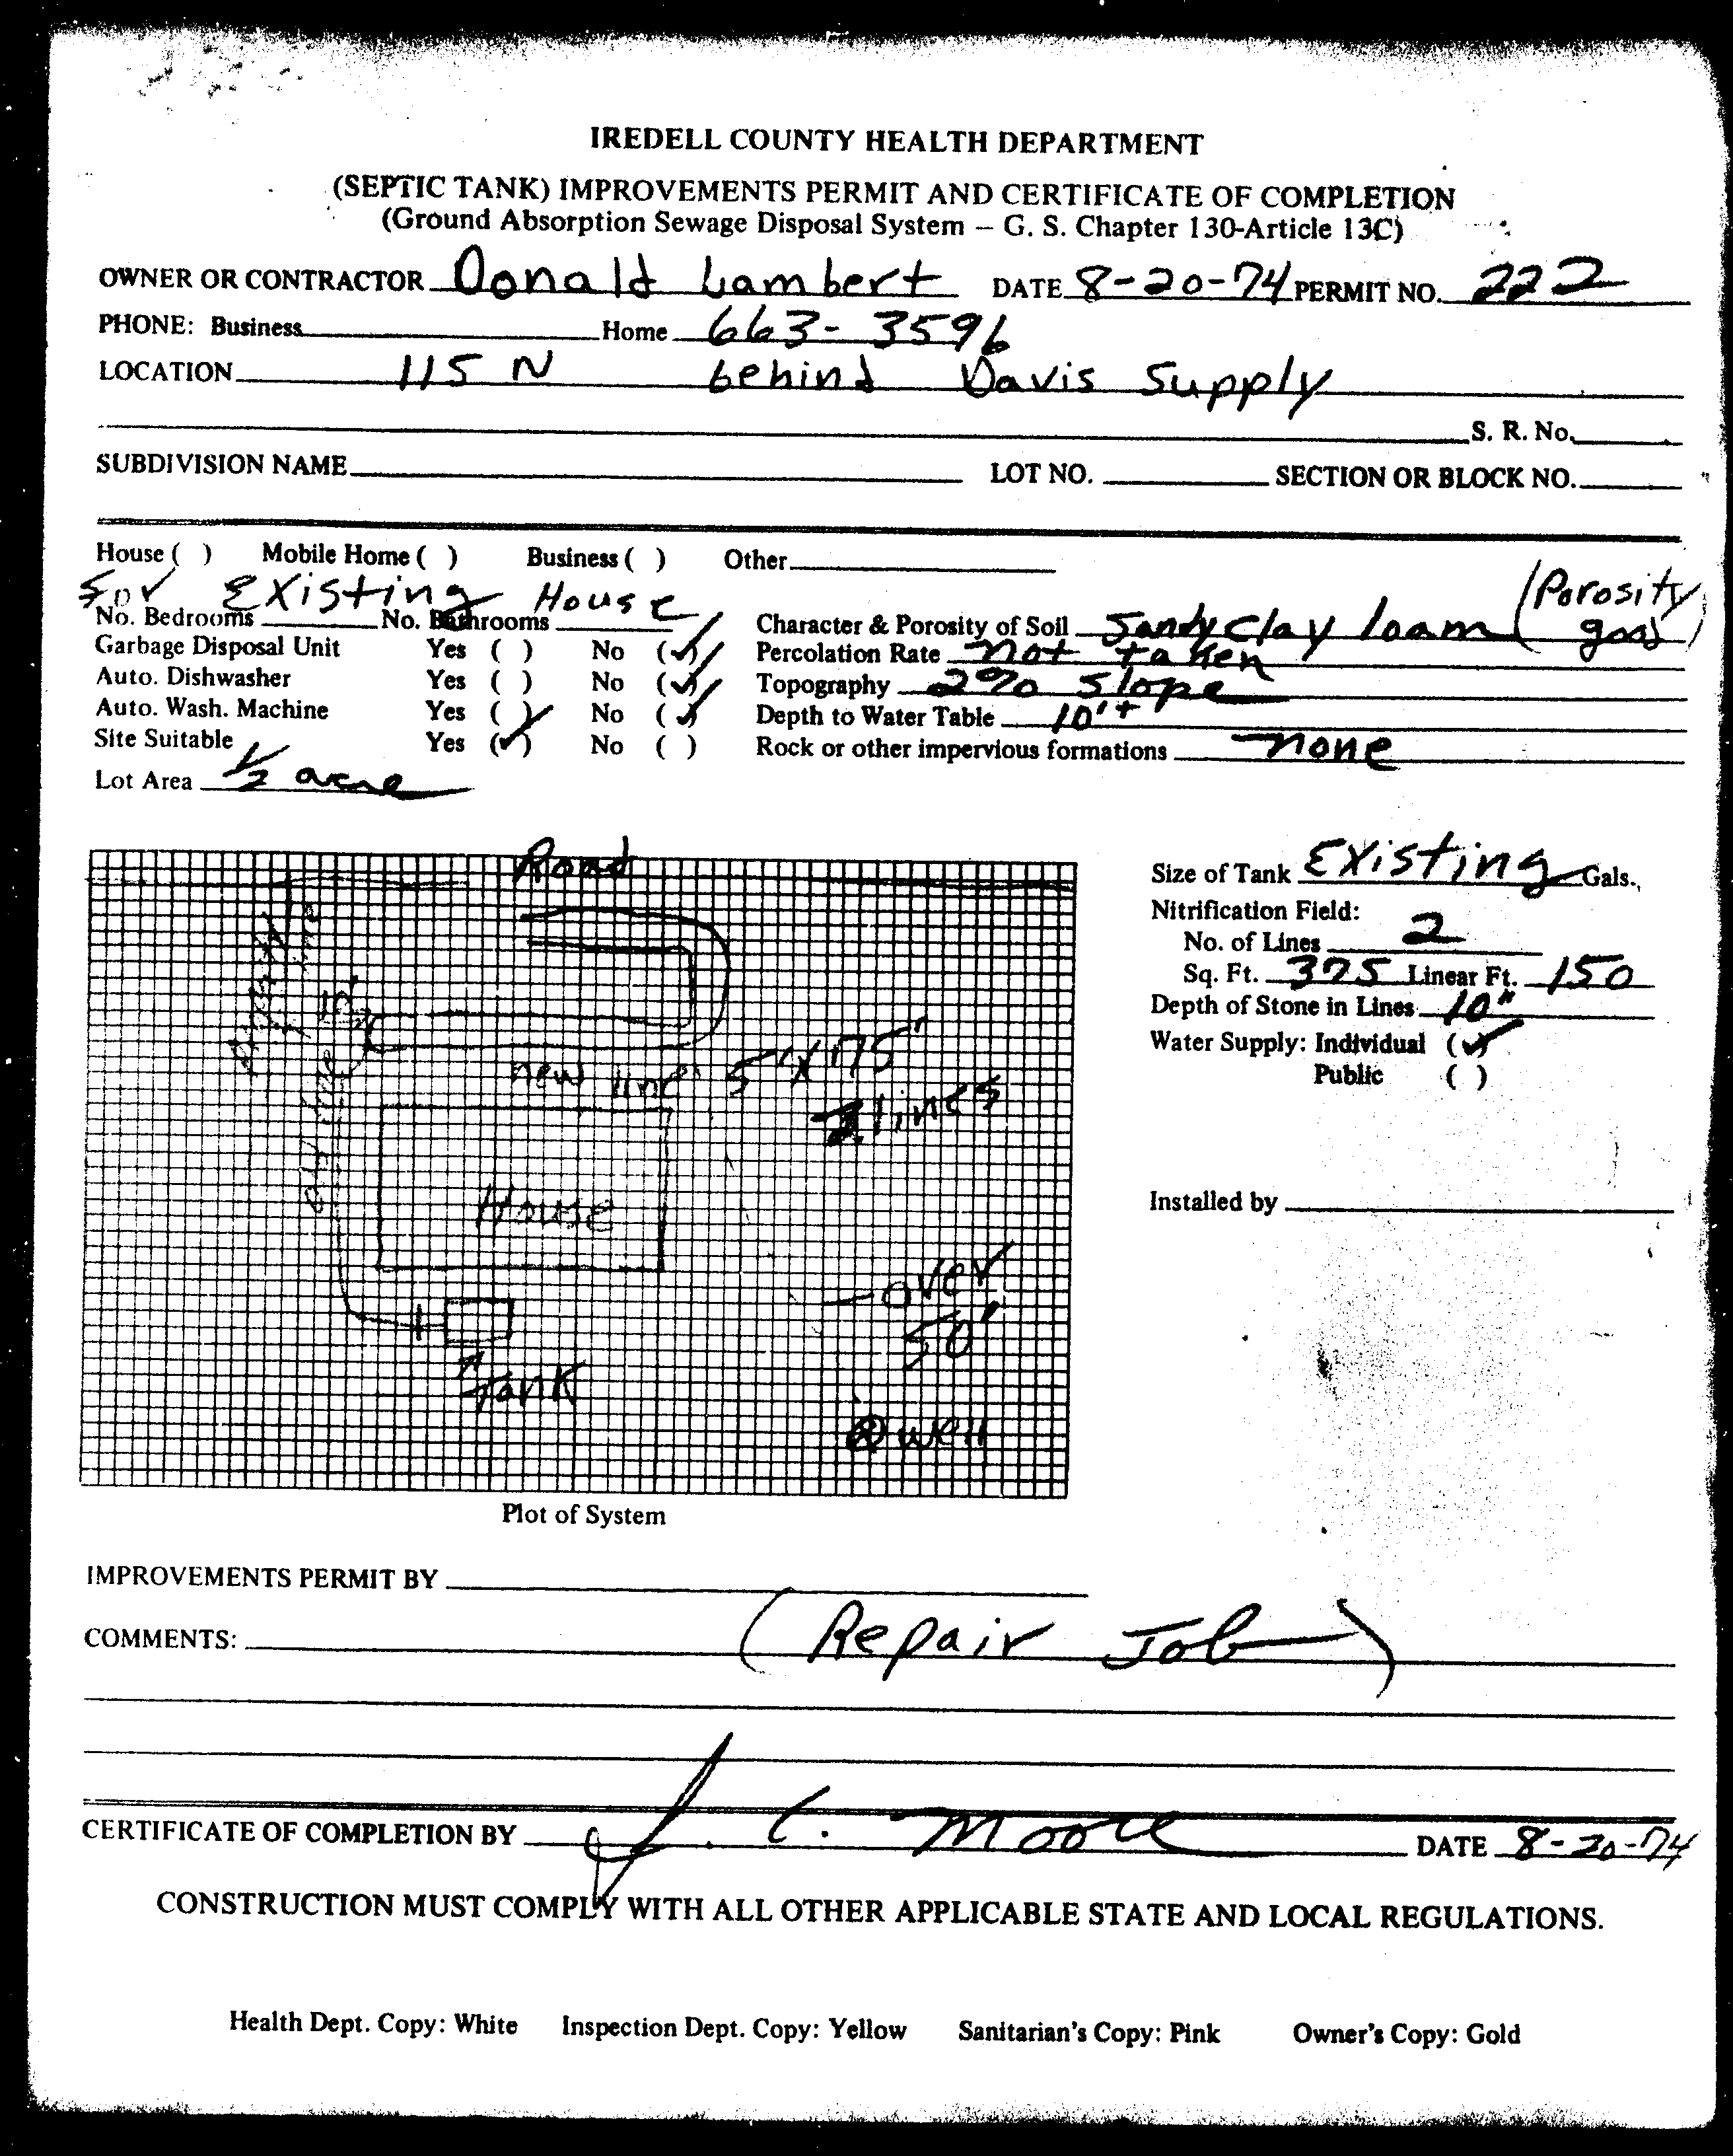 IREDELL COUNTY HEALTH DEPARTMENT
(SEPTIC TANK) IMPROVEMENTS PERMIT AND CERTIFICATE OF COMPLETION
(Ground Absorption Sewage Disposal System – G. S. Chapter 130-Article 13C)
OWNER OR CONTRACTOR Donald Lambert DATE 8-20-74 PERMIT NO. 222
PHONE: Business Home 663-3596
LOCATION 115 N behind Davis Supply
S. R. No.
SUBDIVISION NAME LOT NO. SECTION OR BLOCK NO.
House ( ) Mobile Home ( ) Business ( ) Other
for Existing House
No. Bedrooms No. Bathrooms
Garbage Disposal Unit Yes ( ) No (✓)
Auto. Dishwasher Yes ( ) No (✓)
Auto. Wash. Machine Yes ( ) No (✓)
Site Suitable Yes (✓) No ( )
Lot Area 1/2 acre
Character & Porosity of Soil Sandy clay loam (Porosity good)
Percolation Rate not taken
Topography 2% slope
Depth to Water Table 10'+
Rock or other impervious formations none
Road
new line 5' X 175'
2 lines
old line
House
over
50'
Tank
well
Plot of System
Size of Tank Existing Gals.
Nitrification Field:
No. of Lines 2
Sq. Ft. 375 Linear Ft. 150
Depth of Stone in Lines 10"
Water Supply: Individual (✓)
Public ( )
Installed by
IMPROVEMENTS PERMIT BY
COMMENTS: (Repair Job)
CERTIFICATE OF COMPLETION BY J. C. Moore DATE 8-20-74
CONSTRUCTION MUST COMPLY WITH ALL OTHER APPLICABLE STATE AND LOCAL REGULATIONS.
Health Dept. Copy: White Inspection Dept. Copy: Yellow Sanitarian's Copy: Pink Owner's Copy: Gold